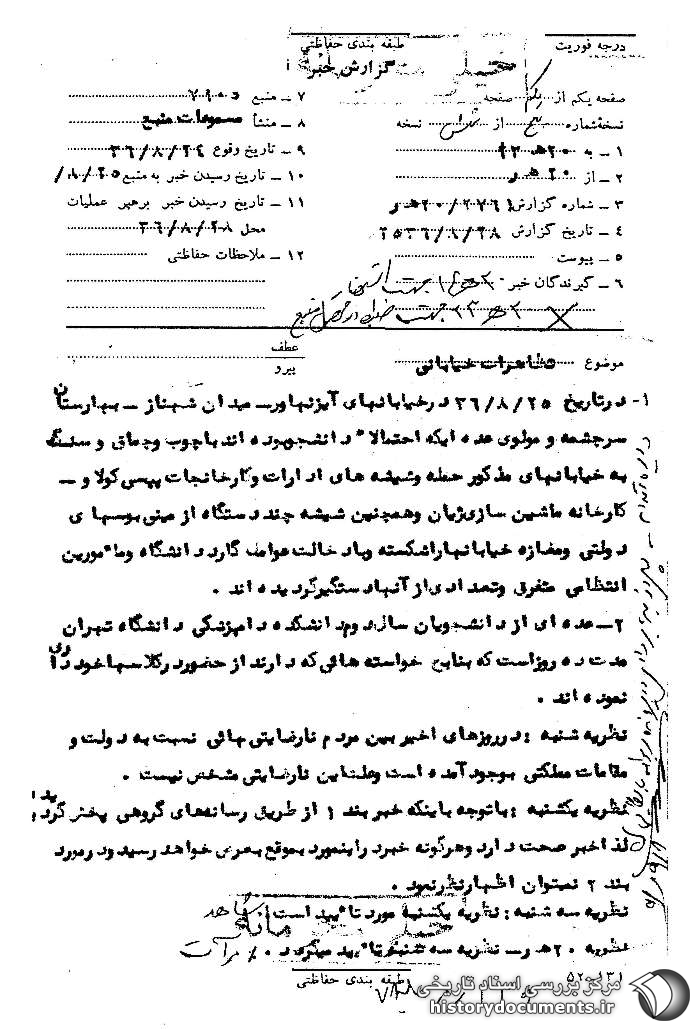 درجه فوریت
طبقه بندی حفاظتی
گزارش خبر
صفحه یکم از یکم صفحه
نسخه شماره پنج از شش نسخه
۱ - به ۲۰هـ ۱۲
۲ - از ۲۰هـ ر
۳ - شماره گزارش ۲۰/۲۷۶۱هـ ر
۴ - تاریخ گزارش ۲۵۳۶/۸/۲۸
۵ - پیوست
۶ - گیرندگان خبر
۷ - منبع ۷۹۰۵
۸ - منشأ مسموعات منبع
۹ - تاریخ وقوع ۳۶/۸/۲۴
۱۰ - تاریخ رسیدن خبر به منبع ۸/۲۵/
۱۱ - تاریخ رسیدن خبر برهبر عملیات
محل ۳۶/۸/۲۸
۱۲ - ملاحظات حفاظتی
عطف
پیرو
موضوع تظاهرات خیابانی
۱- در تاریخ ۳۶/۸/۲۵ در خیابانهای آیزنهاور - میدان شهناز - بهارستان
سرچشمه و مولوی عده ایکه احتمالا" دانشجو بوده اند با چوب و چماق و سنگ
به خیابانهای مذکور حمله و شیشه های ادارات و کارخانجات پپسی کولا و -
کارخانه ماشین سازی ژیان و همچنین شیشه چند دستگاه از مینی بوسهای
دولتی و مغازه خیابانها را شکسته و با دخالت عوامل گارد دانشگاه و مأمورین
انتظامی متفرق و تعدادی از آنها دستگیر گردیده اند .
۲- عده ای از دانشجویان سال دوم دانشکده دامپزشکی دانشگاه تهران
مدت ده روز است که بنا به خواسته هائی که دارند از حضور در کلاسها خودداری
نموده اند .
نظریه شنبه : در روزهای اخیر بین مردم نارضایتی هائی نسبت به دولت و
مقامات مملکتی بوجود آمده است و علت این نارضایتی مشخص نیست .
نظریه یکشنبه : با توجه باینکه خبر بند ۱ از طریق رسانه های گروهی پخش گردیده
لذا خبر صحت دارد و هرگونه خبر در اینمورد بموقع بعرض خواهد رسید و در مورد
بند ۲ نمیتوان اظهار نظر نمود .
نظریه سه شنبه : نظریه یکشنبه مورد تأیید است .
نظریه ۲۰هـ ر - نظریه سه شنبه تأیید میگردد .
طبقه بندی حفاظتی
۵۲-۱۳۱
مرکز بررسی اسناد تاریخی
historydocuments.ir